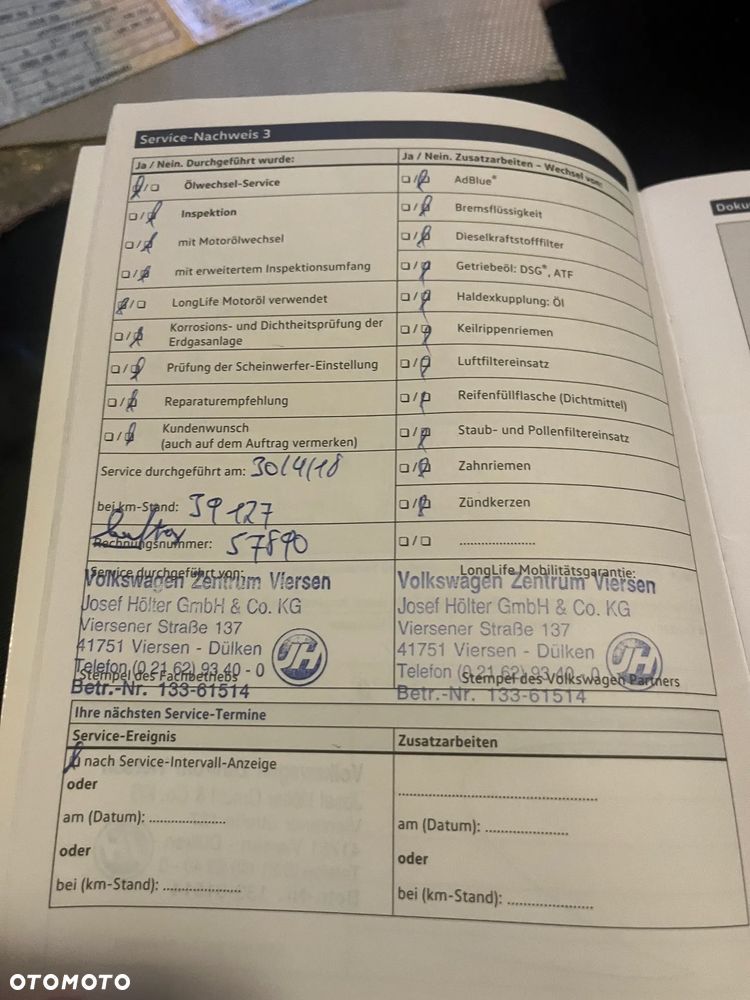 Service-Nachweis 3
Ja / Nein. Durchgeführt wurde:
Ölwechsel-Service
Inspektion
mit Motorölwechsel
mit erweitertem Inspektionsumfang
LongLife Motoröl verwendet
Korrosions- und Dichtheitsprüfung der
Erdgasanlage
Prüfung der Scheinwerfer-Einstellung
Reparaturempfehlung
Kundenwunsch
(auch auf dem Auftrag vermerken)
Service durchgeführt am: 30/4/18
bei km-Stand: 39127
Rechnungsnummer: 57890
Service durchgeführt von:
Volkswagen Zentrum Viersen
Josef Hölter GmbH & Co. KG
Viersener Straße 137
41751 Viersen - Dülken
Telefon (0 21 62) 93 40 - 0
JH
Stempel des Fachbetriebs
Betr.-Nr. 133-61514
Ja / Nein. Zusatzarbeiten – Wechsel von:
AdBlue®
Bremsflüssigkeit
Dieselkraftstofffilter
Getriebeöl: DSG®, ATF
Haldexkupplung: Öl
Keilrippenriemen
Luftfiltereinsatz
Reifenfüllflasche (Dichtmittel)
Staub- und Pollenfiltereinsatz
Zahnriemen
Zündkerzen
......................
LongLife Mobilitätsgarantie:
Volkswagen Zentrum Viersen
Josef Hölter GmbH & Co. KG
Viersener Straße 137
41751 Viersen - Dülken
Telefon (0 21 62) 93 40 - 0
JH
Stempel des Volkswagen Partners
Betr.-Nr. 133-61514
Ihre nächsten Service-Termine
Service-Ereignis
nach Service-Intervall-Anzeige
oder
am (Datum): ......................
oder
bei (km-Stand): ......................
Zusatzarbeiten
......................................................
am (Datum): ......................
oder
bei (km-Stand): ......................
Doku
OTOMOTO